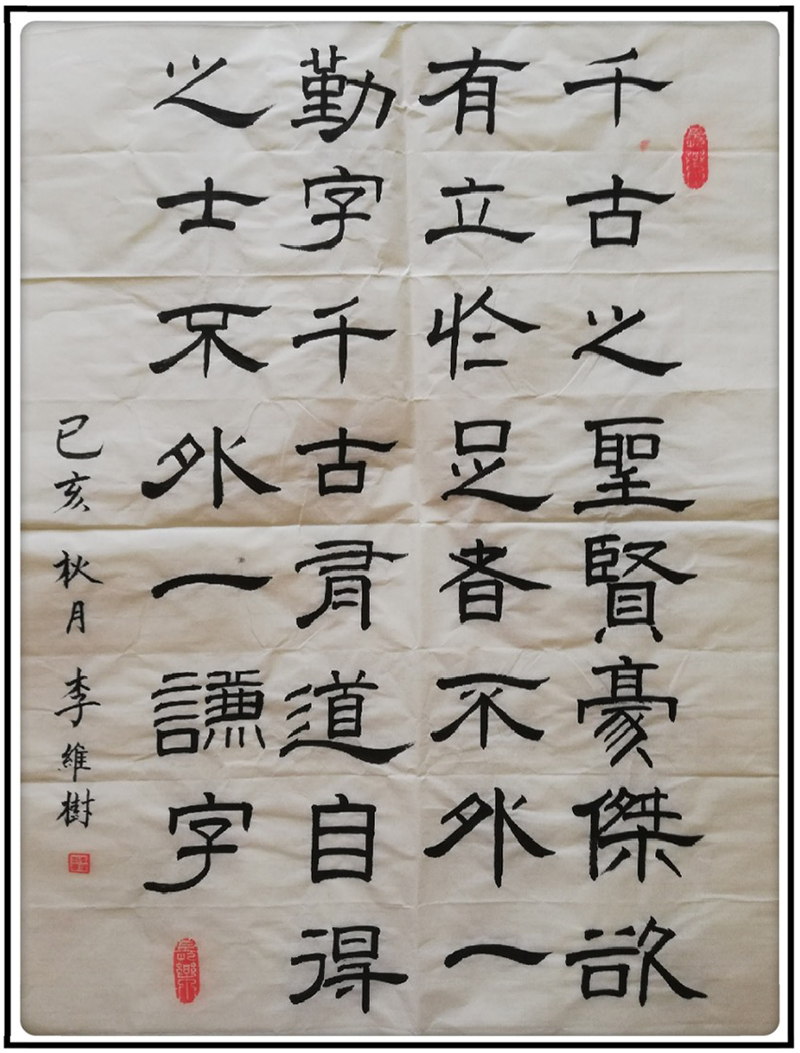 千古之聖賢豪傑欲
有立於足者不外一
勤字千古有道自得
之士不外一謙字
己亥秋月李維樹